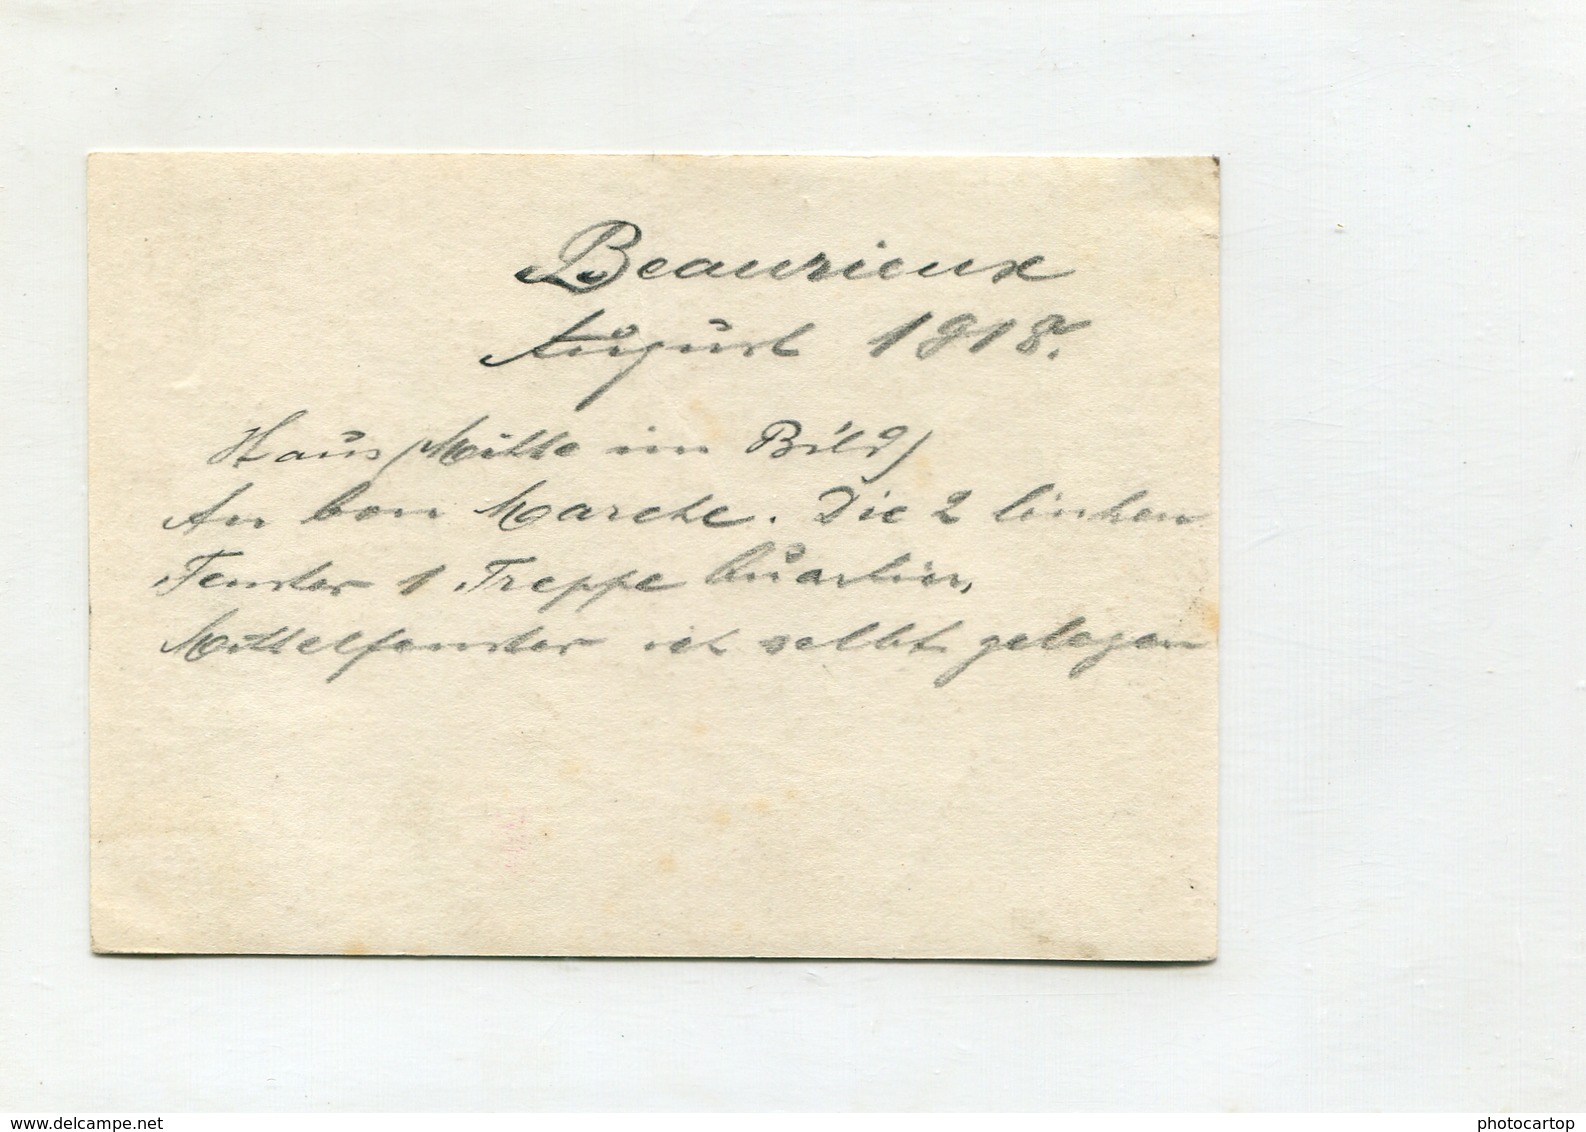 Beaurieux
August 1918.
Haus (Mitte im Bild)
An bon Marche. Die 2 linken
Fenster 1 Treppe Quartier,
Mittelfenster ich selbst gelegen
www.delcampe.net
photocartop